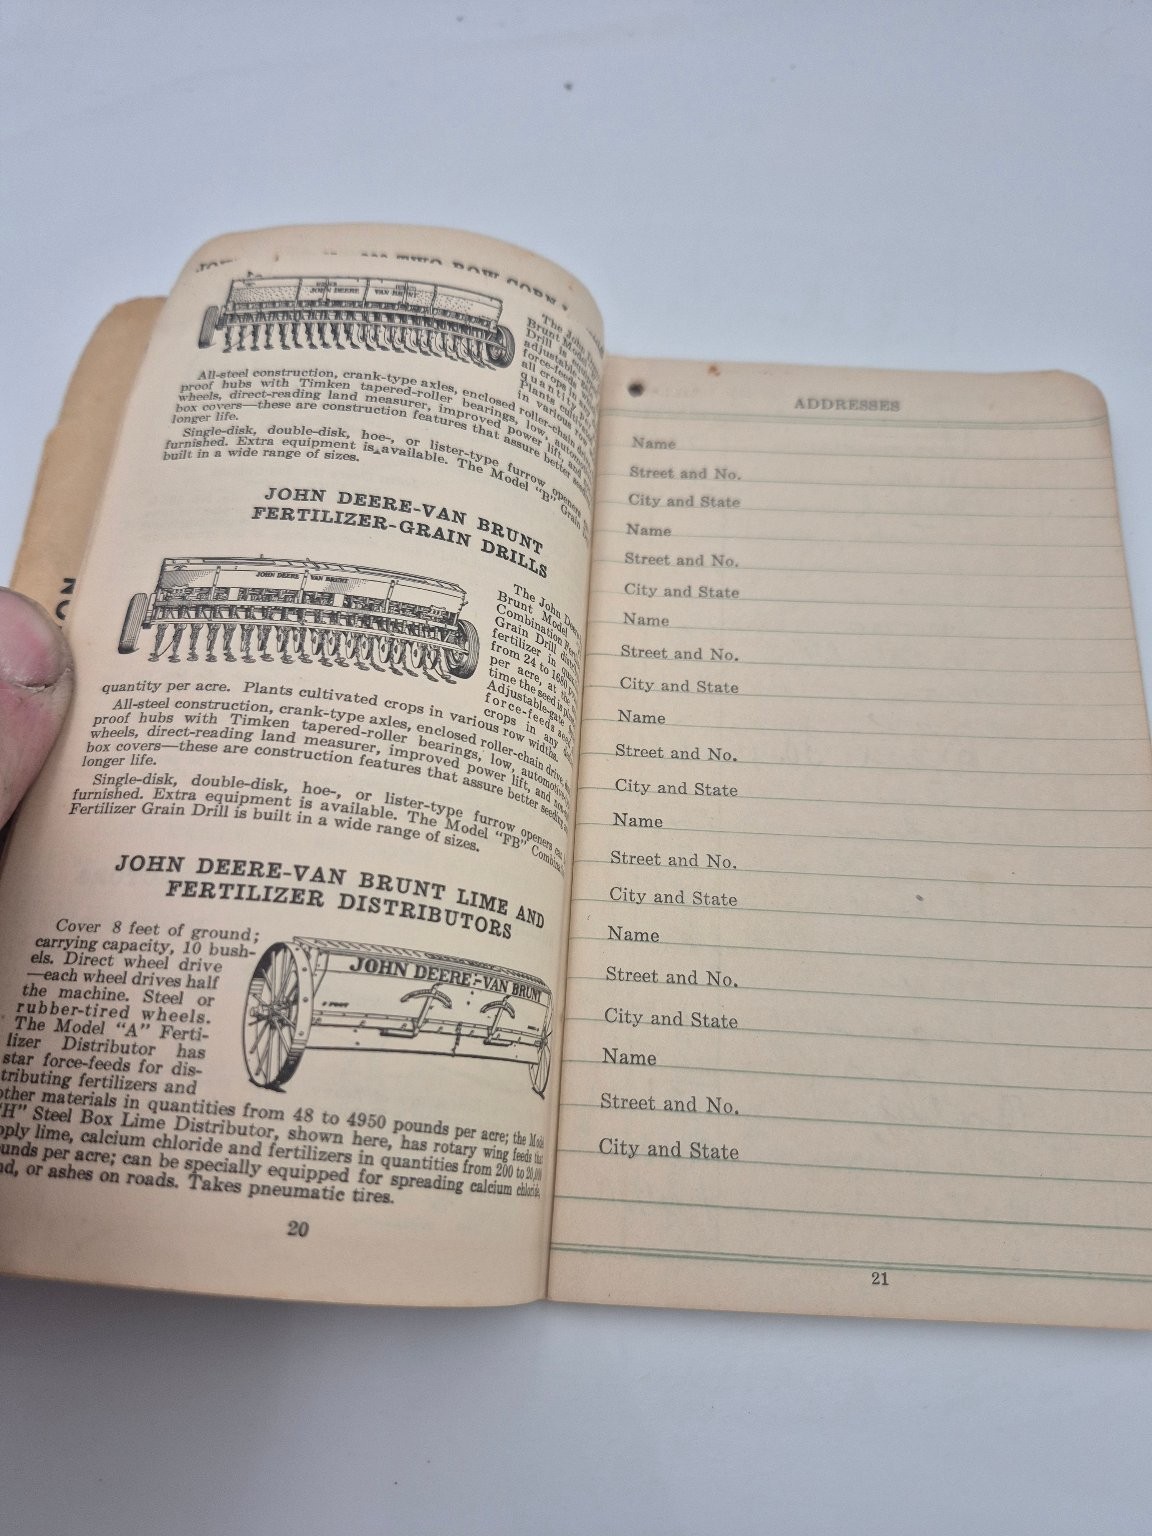 TWO-ROW CORN
JOHN DEERE VAN BRUNT
The John
Brunt Mod
Drill is
adjustable
force-feeds
all crops in any
quantity per
Plants cultivated
in various row
All-steel construction, crank-type axles, enclosed roller-chain drive,
proof hubs with Timken tapered-roller bearings, low, automotive-
wheels, direct-reading land measurer, improved power lift, and
box covers—these are construction features that assure better seeding
longer life.
Single-disk, double-disk, hoe-, or lister-type furrow openers
furnished. Extra equipment is available. The Model "B" Grain
built in a wide range of sizes.
JOHN DEERE-VAN BRUNT
FERTILIZER-GRAIN DRILLS
JOHN DEERE VAN BRUNT
The John Deere
Brunt Model
Combination
Grain Drill
fertilizer in
from 24 to
per acre, at the
time the seed is
Adjustable-gate
force-feeds seed
crops in any
quantity per acre. Plants cultivated crops in various row widths.
All-steel construction, crank-type axles, enclosed roller-chain drive,
proof hubs with Timken tapered-roller bearings, low, automotive-
wheels, direct-reading land measurer, improved power lift, and
box covers—these are construction features that assure better seeding
longer life.
Single-disk, double-disk, hoe-, or lister-type furrow openers
furnished. Extra equipment is available. The Model "FB"
Fertilizer Grain Drill is built in a wide range of sizes.
JOHN DEERE-VAN BRUNT LIME AND
FERTILIZER DISTRIBUTORS
Cover 8 feet of ground;
carrying capacity, 10 bush-
els. Direct wheel drive
—each wheel drives half
the machine. Steel or
rubber-tired wheels.
The Model "A" Ferti-
lizer Distributor has
star force-feeds for dis-
tributing fertilizers and
JOHN DEERE-VAN BRUNT
8 FOOT
other materials in quantities from 48 to 4950 pounds per acre; the
"H" Steel Box Lime Distributor, shown here, has rotary wing feeds
lime, calcium chloride and fertilizers in quantities from 200 to
per acre; can be specially equipped for spreading calcium chloride,
or ashes on roads. Takes pneumatic tires.
20
ADDRESSES
Name
Street and No.
City and State
Name
Street and No.
City and State
Name
Street and No.
City and State
Name
Street and No.
City and State
Name
Street and No.
City and State
Name
Street and No.
City and State
Name
Street and No.
City and State
21